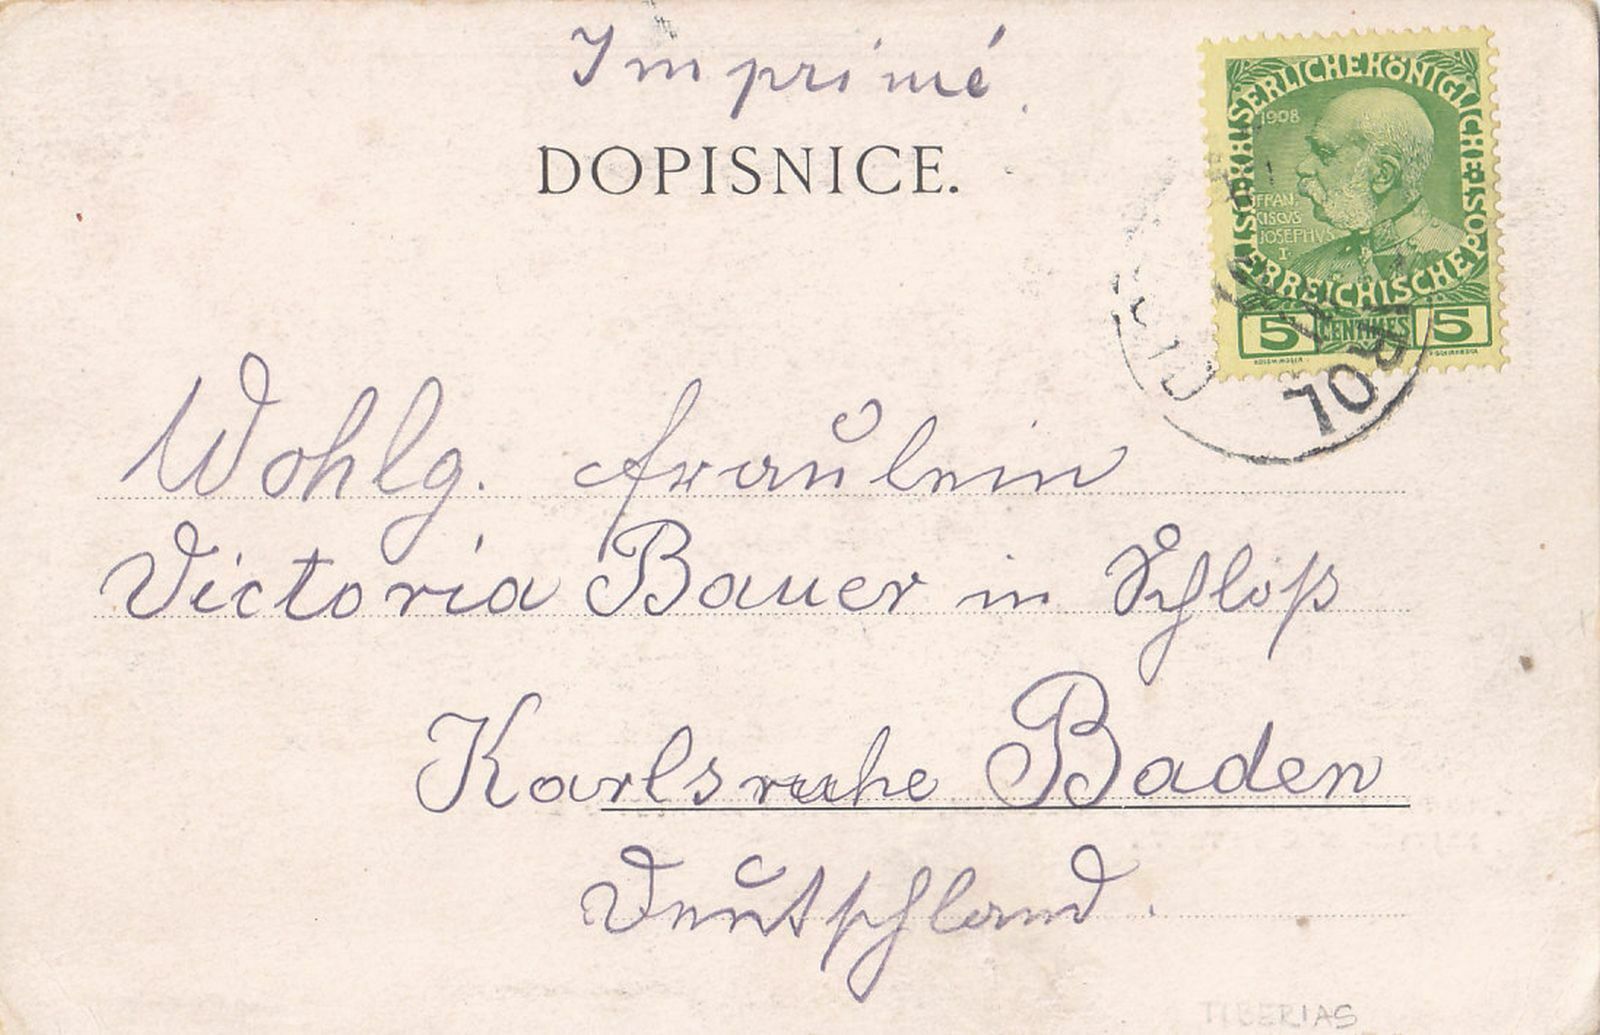 Imprimé.
DOPISNICE.
KAISERLICHE KÖNIGLICHE ÖSTERREICHISCHE POST
1908
FRAN
CISCVS
JOSEPHVS
I.
5 CENTIMES 5
Wohlg. Fräulein
Victoria Bauer in Schloß
Karlsruhe Baden
Deutschland.
TIBERIAS